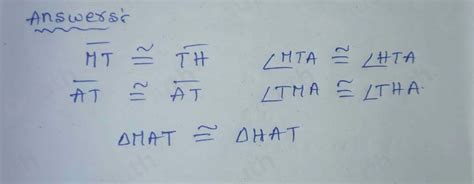 Answers:
M̅T̅ ≅ T̅H̅ ∠MTA ≅ ∠HTA
A̅T̅ ≅ A̅T̅ ∠TMA ≅ ∠THA.
△MAT ≅ △HAT